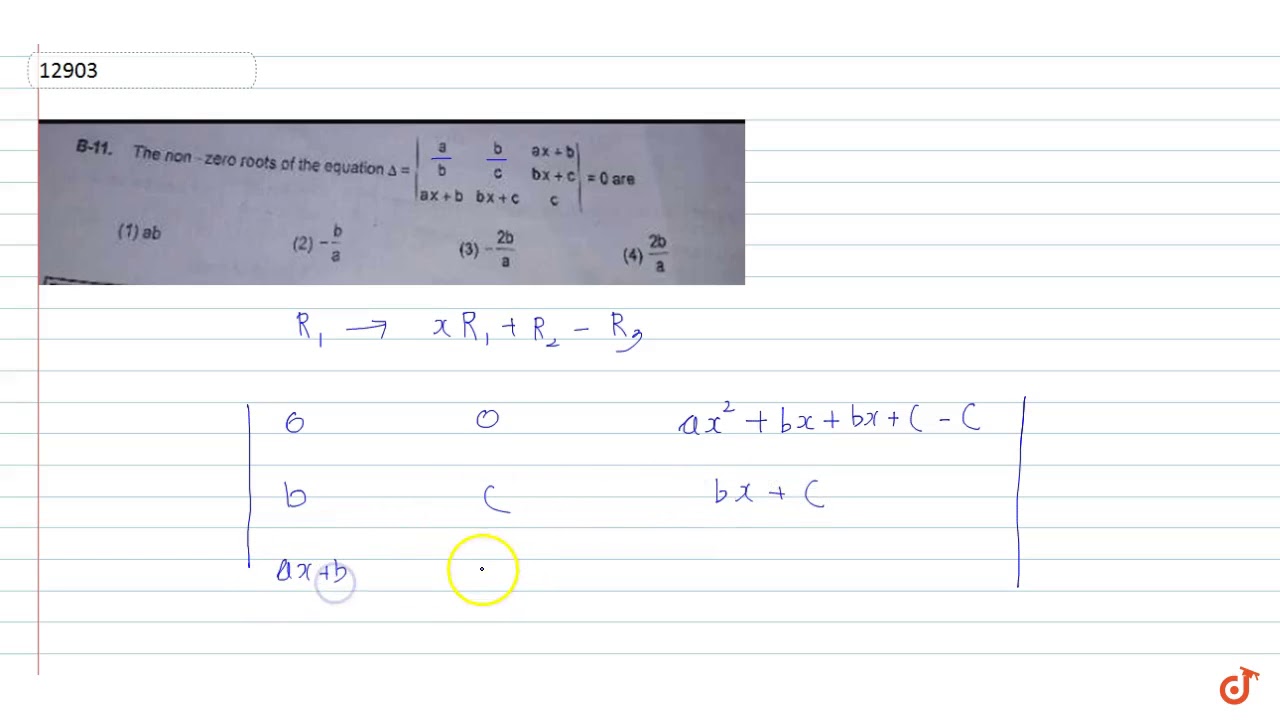 12903
B-11. The non-zero roots of the equation Δ = | a b ax + b |
| b c bx + c | = 0 are
| ax + b bx + c c |
(1) ab (2) - b/a (3) - 2b/a (4) 2b/a
R₁ → x R₁ + R₂ - R₃
0 0 ax² + bx + bx + C - C
b C bx + C
ax + b